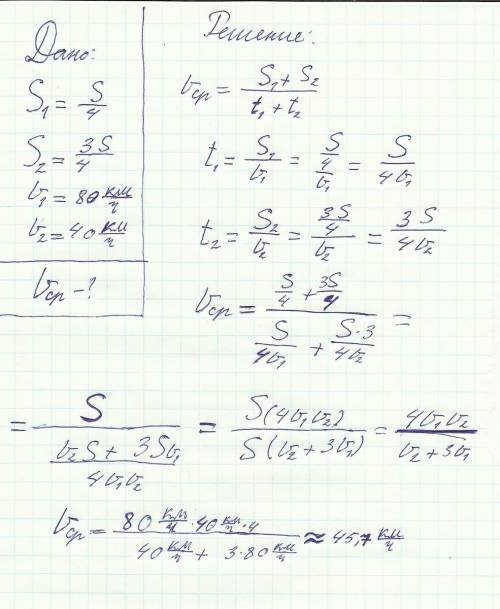 Дано:
S₁ = S/4
S₂ = 3S/4
v₁ = 80 км/ч
v₂ = 40 км/ч
vср - ?
Решение:
vср = (S₁ + S₂)/(t₁ + t₂)
t₁ = S₁/v₁ = (S/4)/v₁ = S/4v₁
t₂ = S₂/v₂ = (3S/4)/v₂ = 3S/4v₂
vср = (S/4 + 3S/4)/(S/4v₁ + S·3/4v₂) =
= S/((v₂S + 3Sv₁)/4v₁v₂) = S(4v₁v₂)/S(v₂ + 3v₁) = 4v₁v₂/(v₂ + 3v₁)
vср = (80 км/ч · 40 км/ч · 4)/(40 км/ч + 3·80 км/ч) ≈ 45,7 км/ч